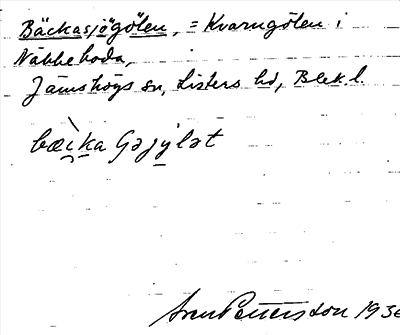 Bäckasjögölen, = Kvarngölen i
Näbbeboda,
Jämshögs sn, Listers hd, Blek. l.
bæcka Gəjylət
Sven Pettersson 193